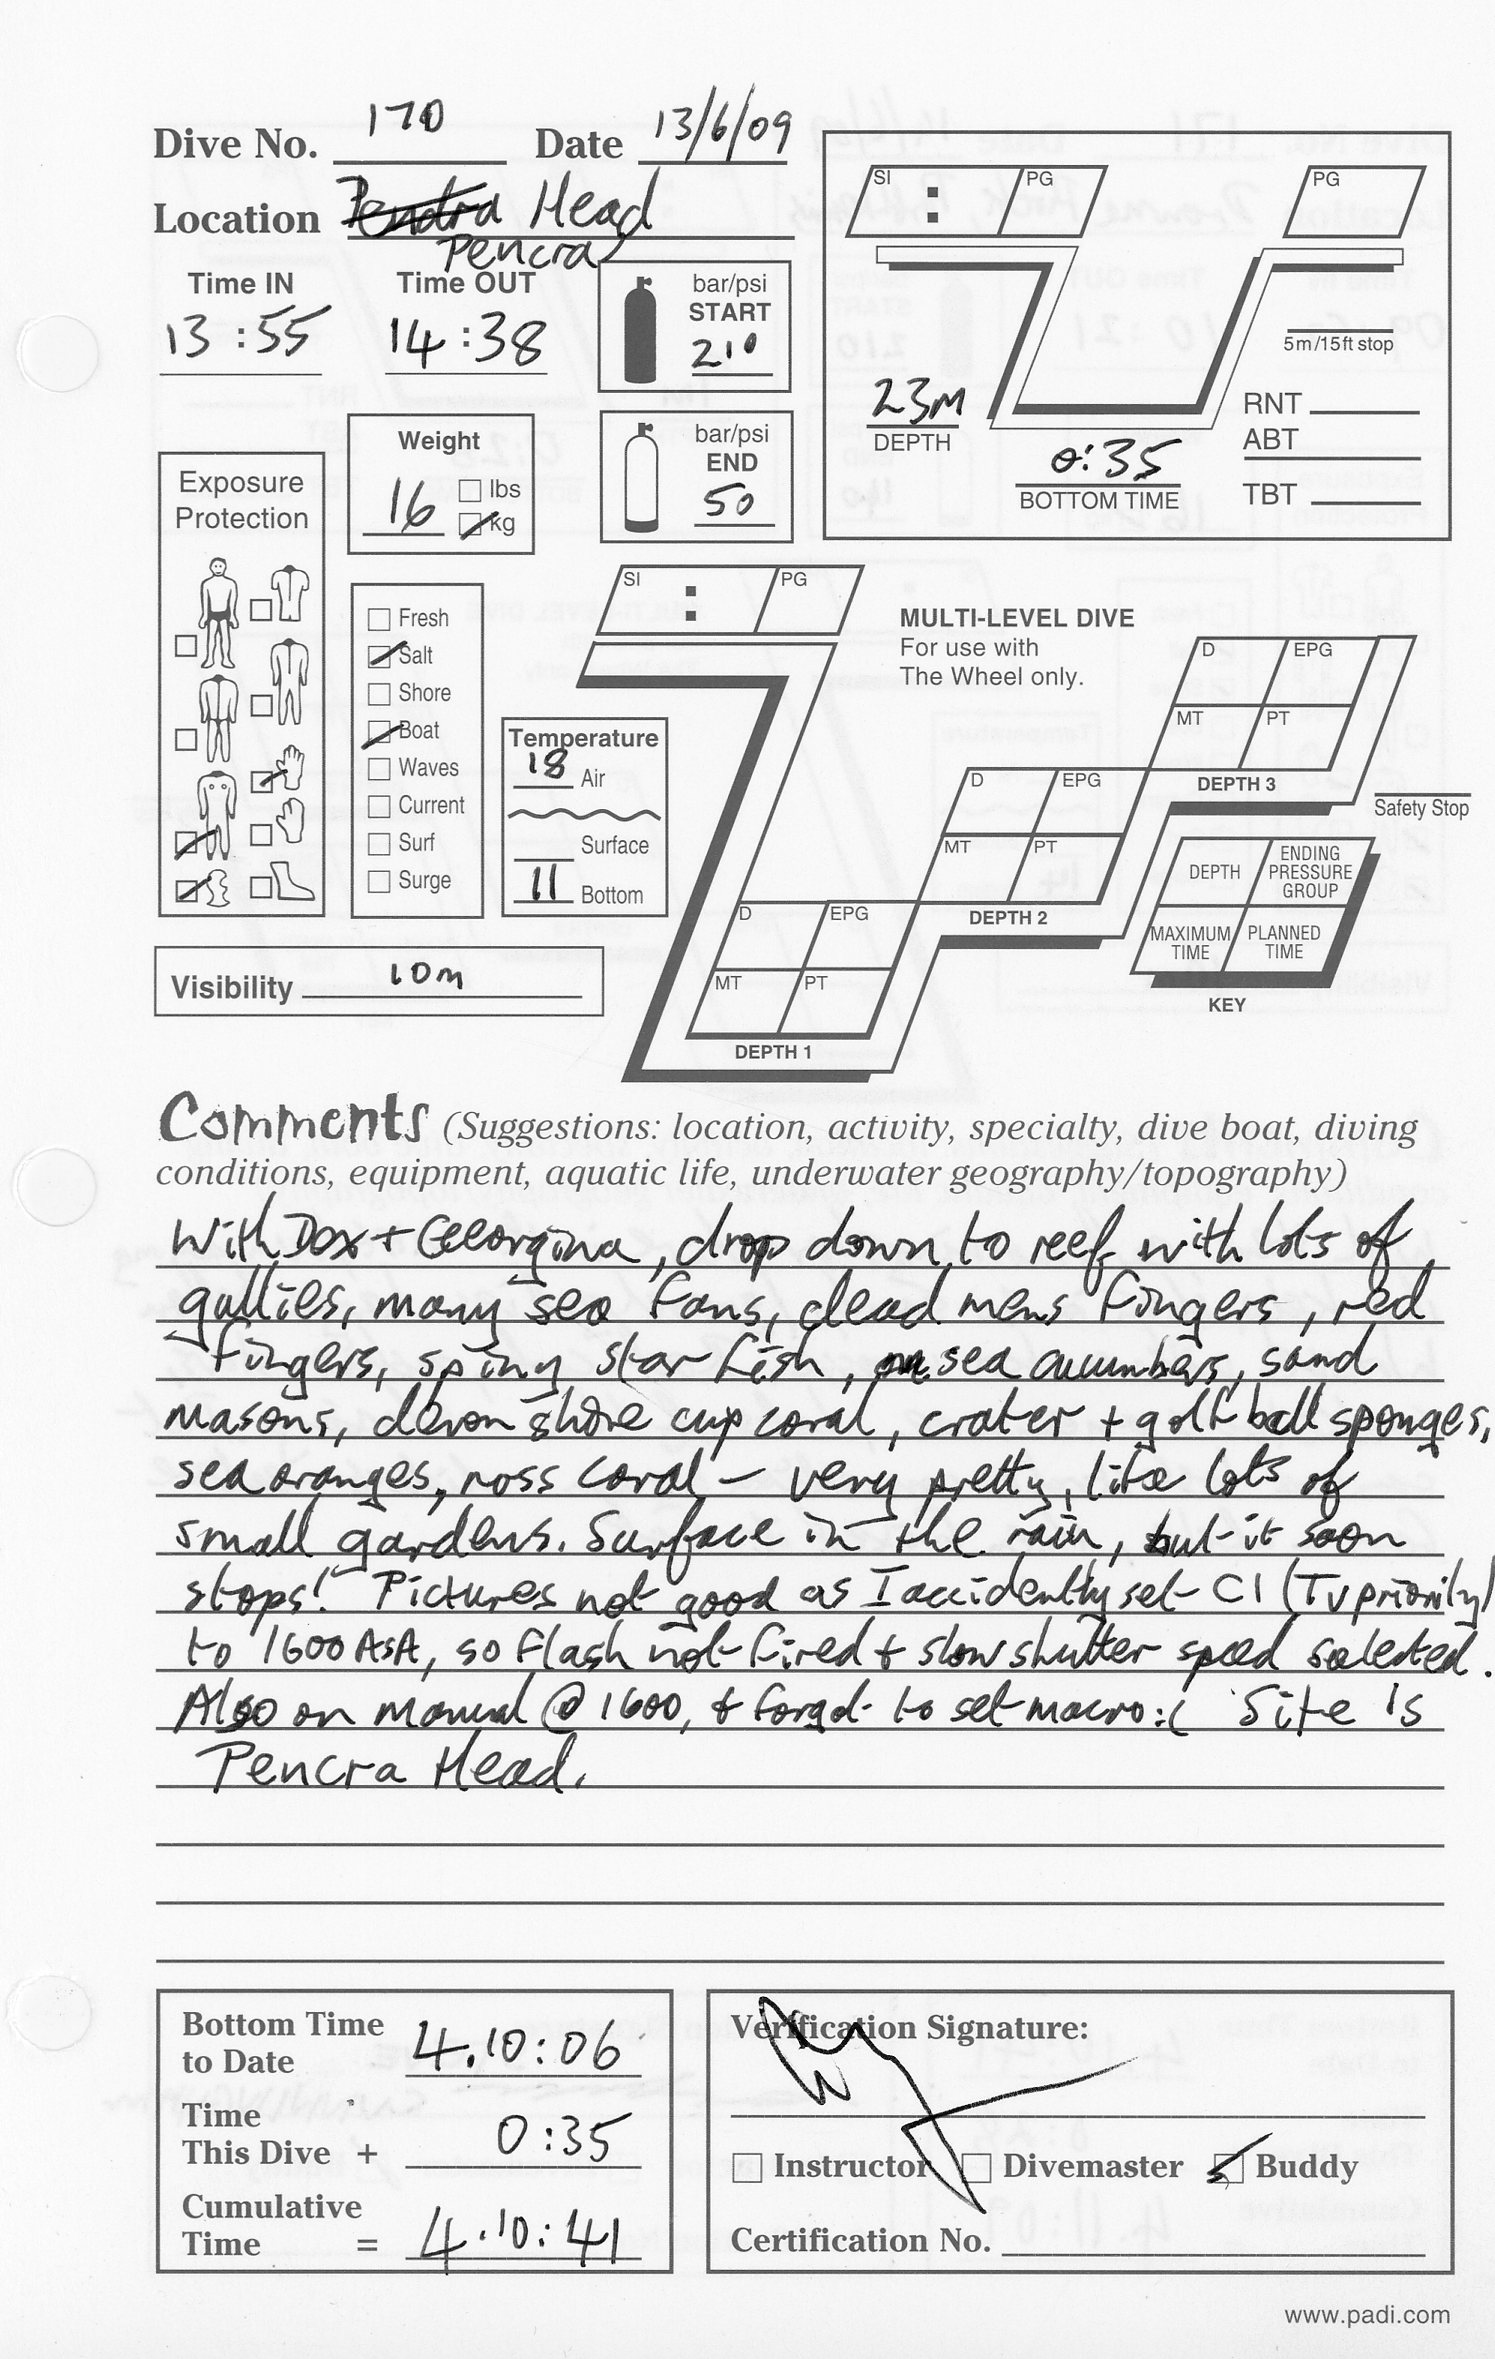 Dive No. 170 Date 13/6/09
Location Pendra Head
Pencra
Time IN Time OUT
13:55 14:38
bar/psi
START
210
bar/psi
END
50
Weight
16 lbs
kg
Exposure
Protection
Fresh
Salt
Shore
Boat
Waves
Current
Surf
Surge
Temperature
18 Air
Surface
11 Bottom
Visibility 10m
SI : PG
PG
23m
DEPTH
0:35
BOTTOM TIME
5m/15ft stop
RNT
ABT
TBT
SI : PG
MULTI-LEVEL DIVE
For use with
The Wheel only.
D EPG
MT PT
DEPTH 3
D EPG
MT PT
DEPTH 2
D EPG
MT PT
DEPTH 1
Safety Stop
DEPTH ENDING PRESSURE GROUP
MAXIMUM TIME PLANNED TIME
KEY
Comments (Suggestions: location, activity, specialty, dive boat, diving
conditions, equipment, aquatic life, underwater geography/topography)
With Dex + Georgina, drop down to reef with lots of
gullies, many sea fans, dead mens fingers, red
fingers, spiny star fish, sea cucumbers, sand
masons, devonshire cup coral, crater + golf ball sponges,
sea oranges, ross coral - very pretty, like lots of
small gardens. Surface in the rain, but it soon
stops! Pictures not good as I accidently set C1 (Tv priority)
to 1600 ASA, so flash not fired + slow shutter speed selected.
Also on manual @ 1600, + forgot to set macro :( Site is
Pencra Head.
Bottom Time
to Date 4.10:06
Time
This Dive + 0:35
Cumulative
Time = 4.10:41
Verification Signature:
Instructor Divemaster Buddy
Certification No.
www.padi.com